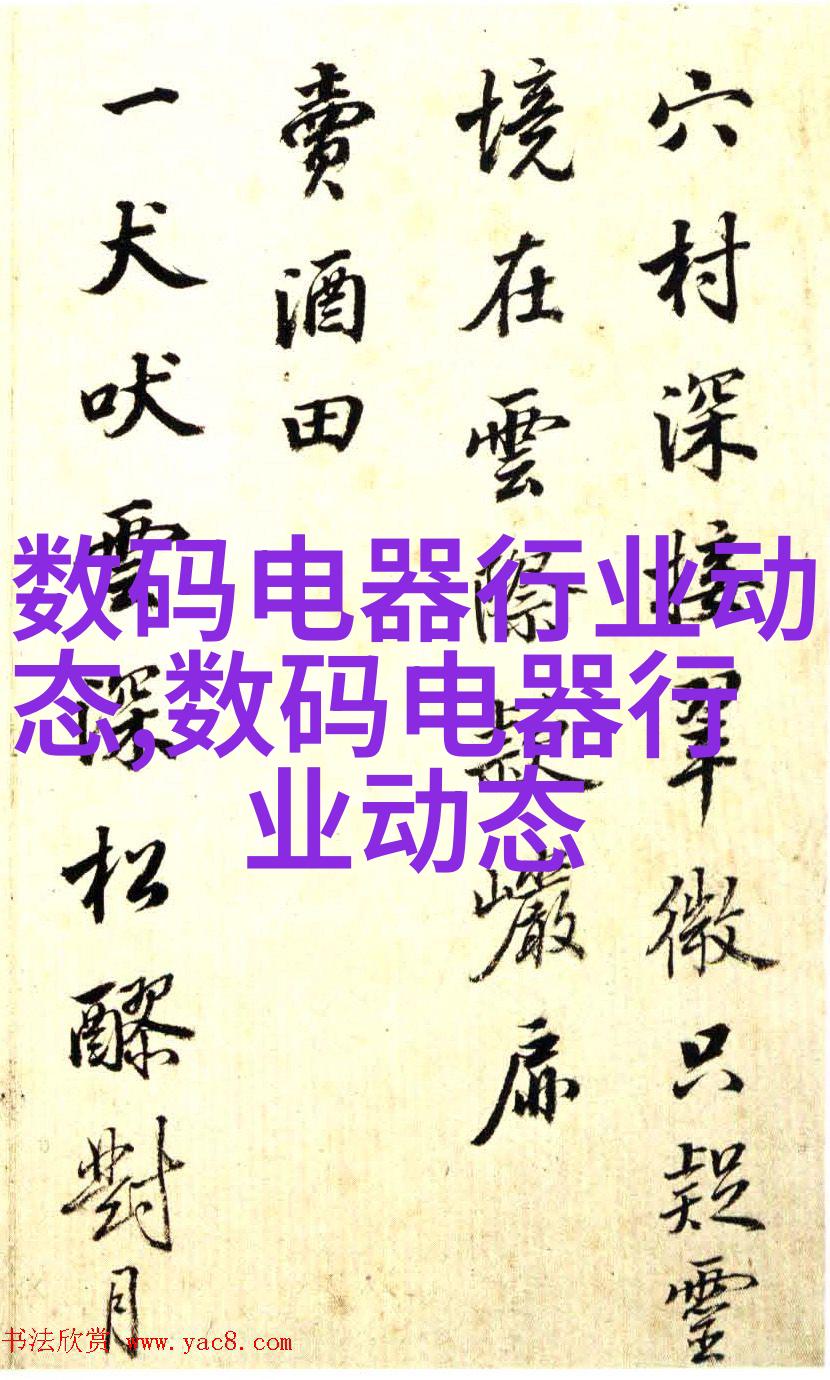 穴村深接翠微只疑靈
境在雲際疑巖扉
賣酒田
一犬吠雲深松醪對月
数码电器行业动
态,数码电器行
业动态
书法欣赏 www.yac8.com